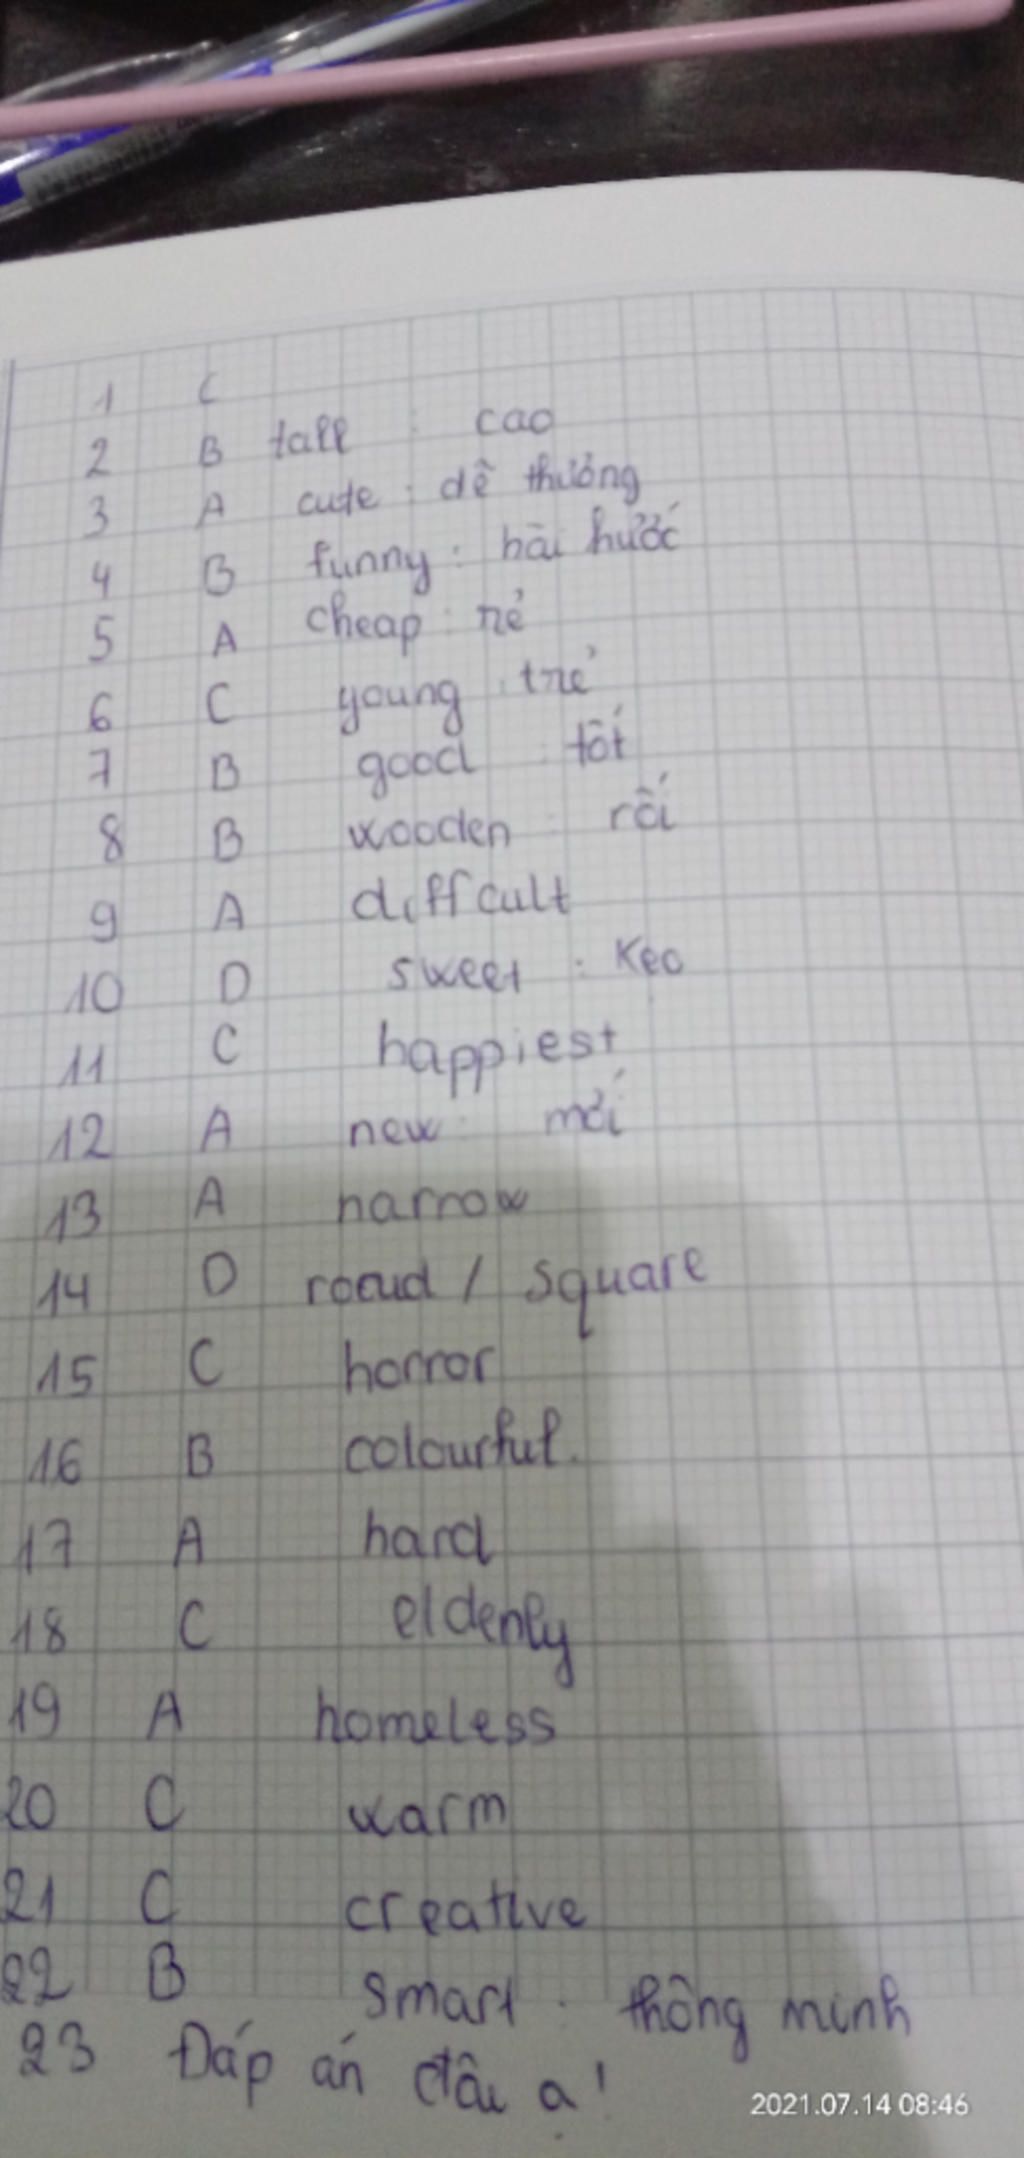 1 C
2 B tall : cao
3 A cute : dễ thương
4 B funny : hài hước
5 A cheap : rẻ
6 C young : trẻ
7 B good : tốt
8 B wooden : rối
9 A diffcult
10 D sweet : kẹo
11 C happiest
12 A new : mới
13 A narrow
14 D / square
15 C horror
16 B colourful.
17 A hard
18 C elderly
19 A homeless
20 C warm
21 C creative
22 B smart : thông minh
23 Đáp án đâu ạ!
2021.07.14 08:46